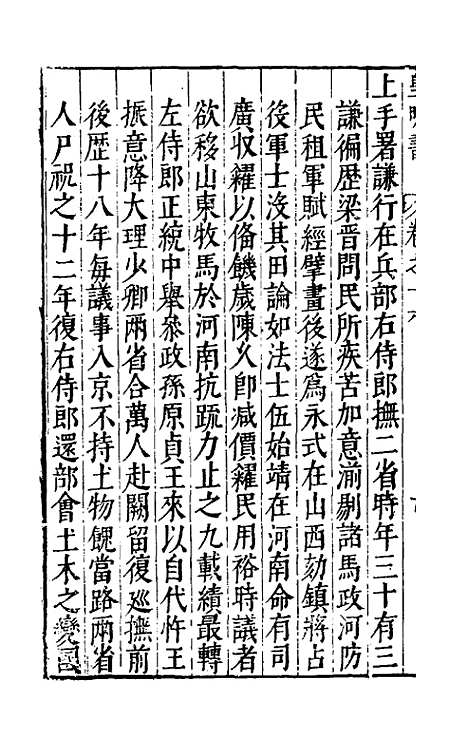 皇明書 卷之十六
上手署謙行在兵部右侍郎撫二省時年三十有三
謙徧歴梁晉問民所疾苦加意湔剔諸馬政河防
民租軍賦經擘畫後遂爲永式在山西劾鎮將占
役軍士沒其田論如法士伍始靖在河南命有司
廣収糴以俻饑歲陳久卽減價糶民用裕時議者
欲移山東牧馬於河南抗疏力止之九載績最轉
左侍郎正統中舉叅政孫原貞王來以自代忤王
振意降大理少卿兩省合萬人赴闕留復巡撫前
後歴十八年每議事入京不持土物餽當路兩省
人尸祝之十二年復右侍郎還部會土木之變國